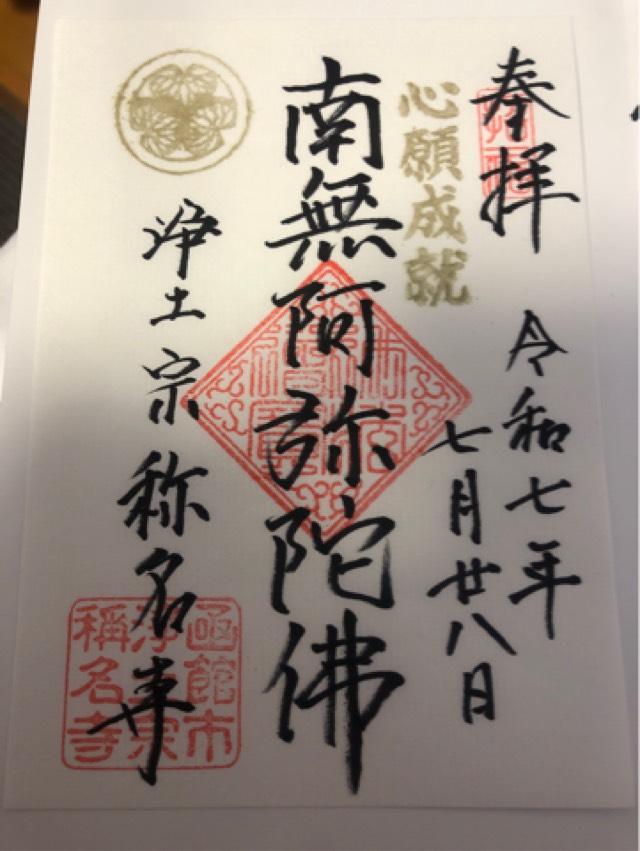 奉拝
令和七年
七月廿八日
心願成就
南無阿弥陀佛
浄土宗 称名寺
函館市
浄土宗
稱名寺